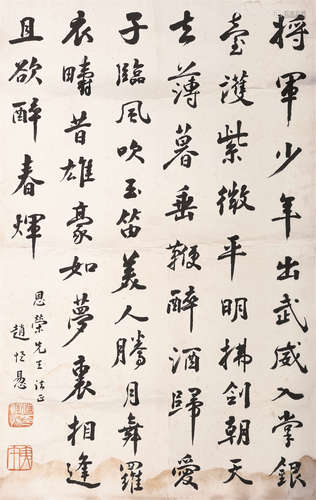 將軍少年出武威入掌銀
臺護紫微平明拂劍朝天
去薄暮垂鞭醉酒歸愛
子臨風吹玉笛美人騰月舞羅
衣疇昔雄豪如夢裏相逢
且欲醉春輝
恩榮先生法正
趙恒惖